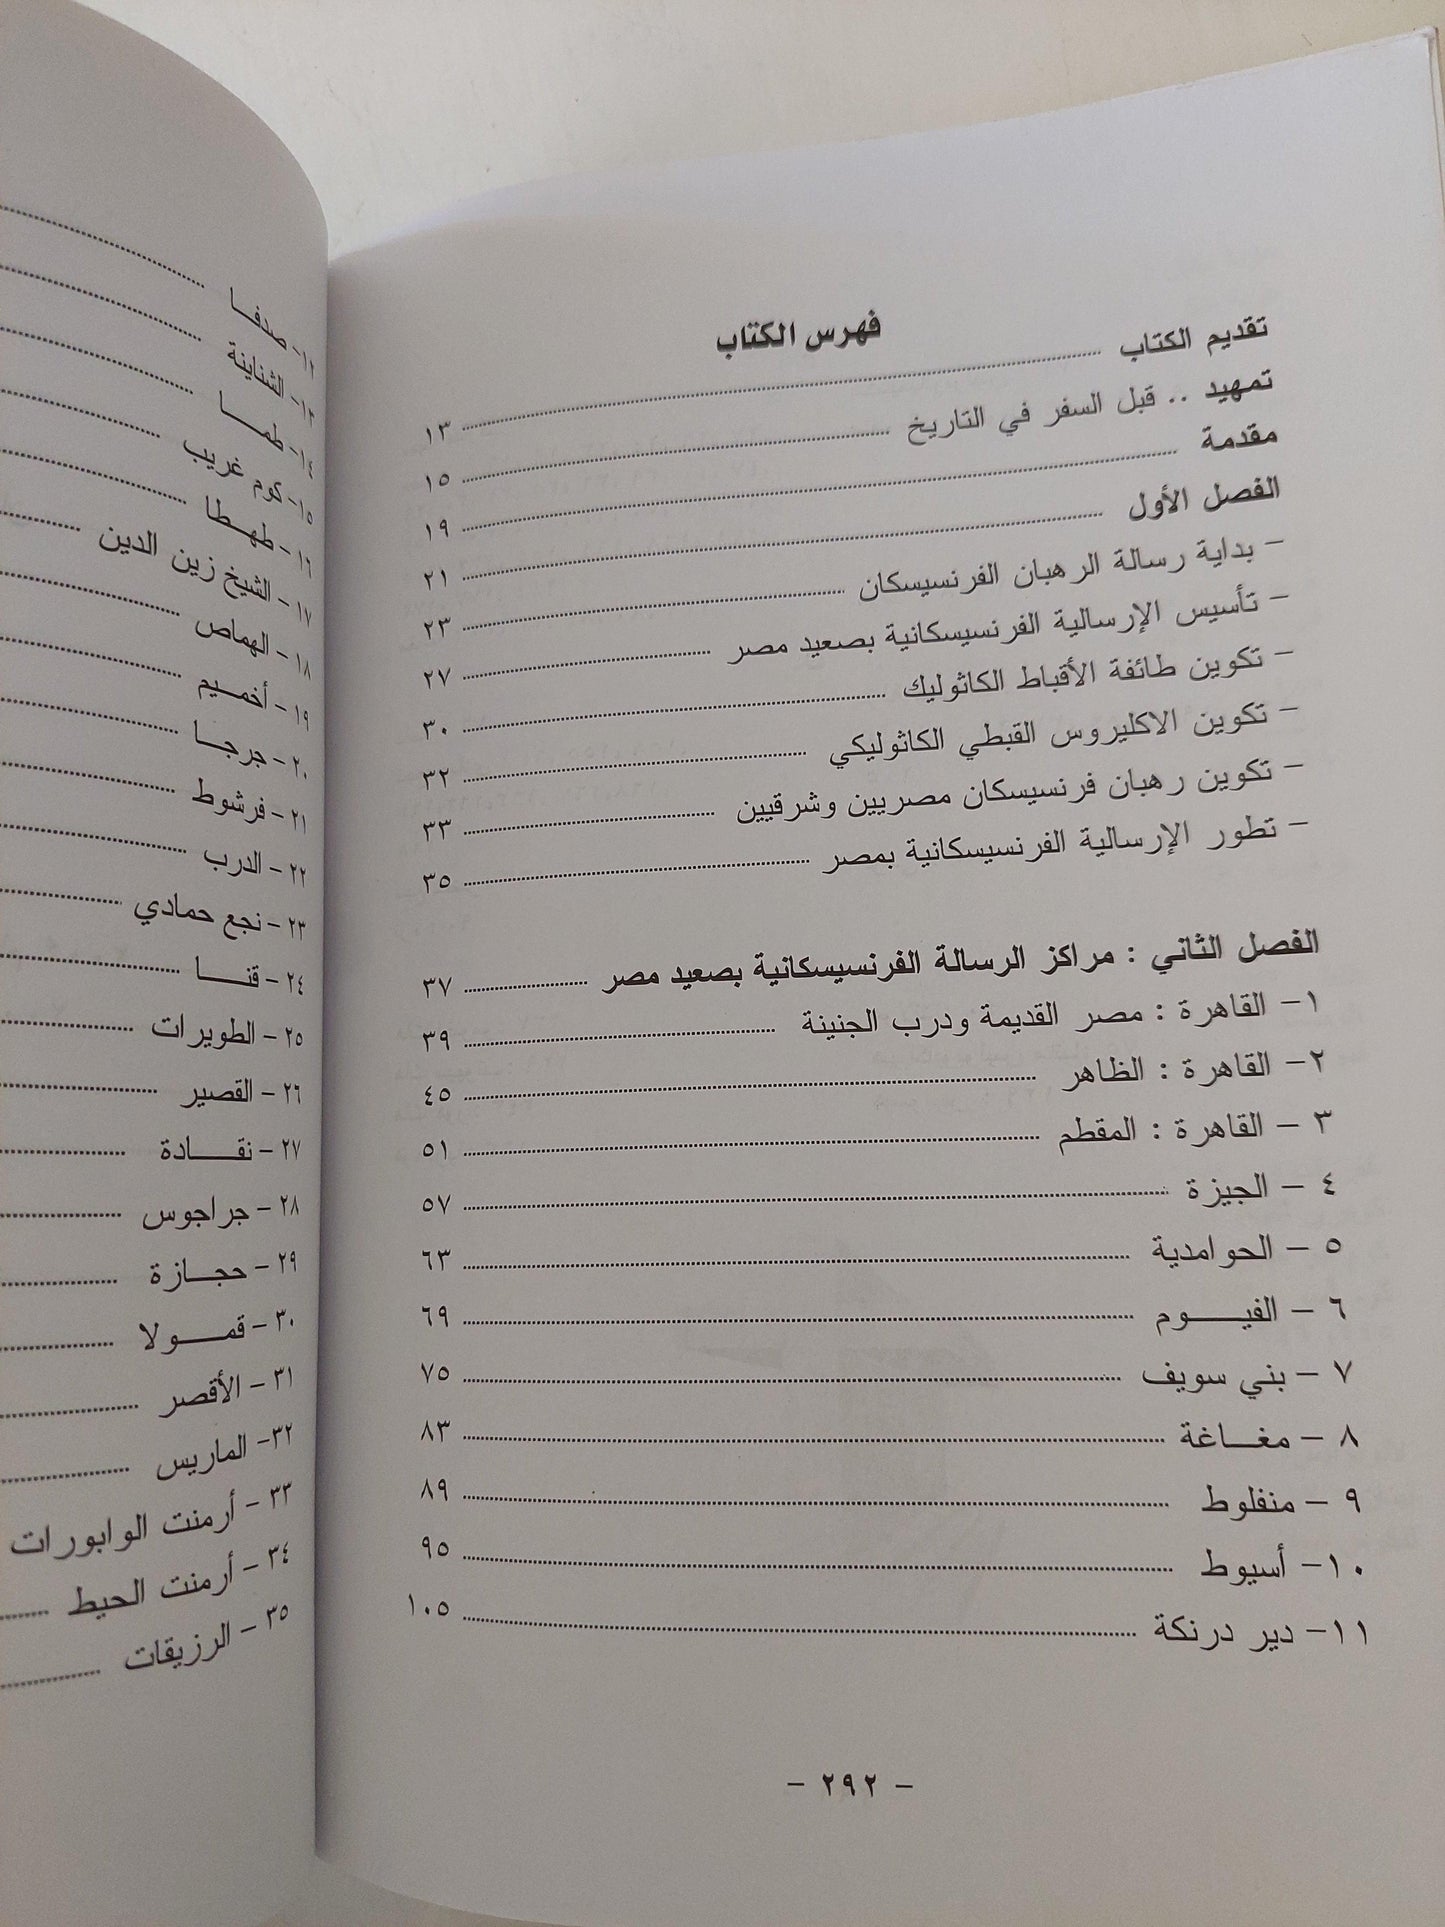 فهرس الكتاب
تقديم الكتاب ........ ١٣
تمهيد .. قبل السفر في التاريخ ........ ١٥
مقدمة ........ ١٩
الفصل الأول ........ ٢١
- بداية رسالة الرهبان الفرنسيسكان ........ ٢٣
- تأسيس الإرسالية الفرنسيسكانية بصعيد مصر ........ ٢٧
- تكوين طائفة الأقباط الكاثوليك ........ ٣٠
- تكوين الاكليروس القبطي الكاثوليكي ........ ٣٢
- تكوين رهبان فرنسيسكان مصريين وشرقيين ........ ٣٣
- تطور الإرسالية الفرنسيسكانية بمصر ........ ٣٥
الفصل الثاني : مراكز الرسالة الفرنسيسكانية بصعيد مصر ........ ٣٧
١- القاهرة : مصر القديمة ودرب الجنينة ........ ٣٩
٢- القاهرة : الظاهر ........ ٤٥
٣ - القاهرة : المقطم ........ ٥١
٤ - الجيزة ........ ٥٧
٥ - الحوامدية ........ ٦٣
٦ - الفيـــوم ........ ٦٩
٧ - بني سويف ........ ٧٥
٨ - مغـــاغة ........ ٨٣
٩ - منفلوط ........ ٨٩
١٠- أسيوط ........ ٩٥
١١- دير درنكة ........ ١٠٥
- ٢٩٢ -
١٢- صدفـــا ........
١٣- الشناينة ........
١٤- طمـــا ........
١٥- كوم غريب ........
١٦- طهـــطا ........
١٧- الشيخ زين الدين ........
١٨- الهماص ........
١٩- أخمـــيم ........
٢٠- جرجـــا ........
٢١- فرشوط ........
٢٢- الدرب ........
٢٣- نجع حمادي ........
٢٤- قنـــا ........
٢٥- الطويرات ........
٢٦- القصير ........
٢٧- نقـــادة ........
٢٨- جراجوس ........
٢٩- حجـــازة ........
٣٠- قمـــولا ........
٣١- الأقصر ........
٣٢- الماريس ........
٣٣- أرمنت الوابورات
٣٤- أرمنت الحيط ........
٣٥- الرزيقات ........